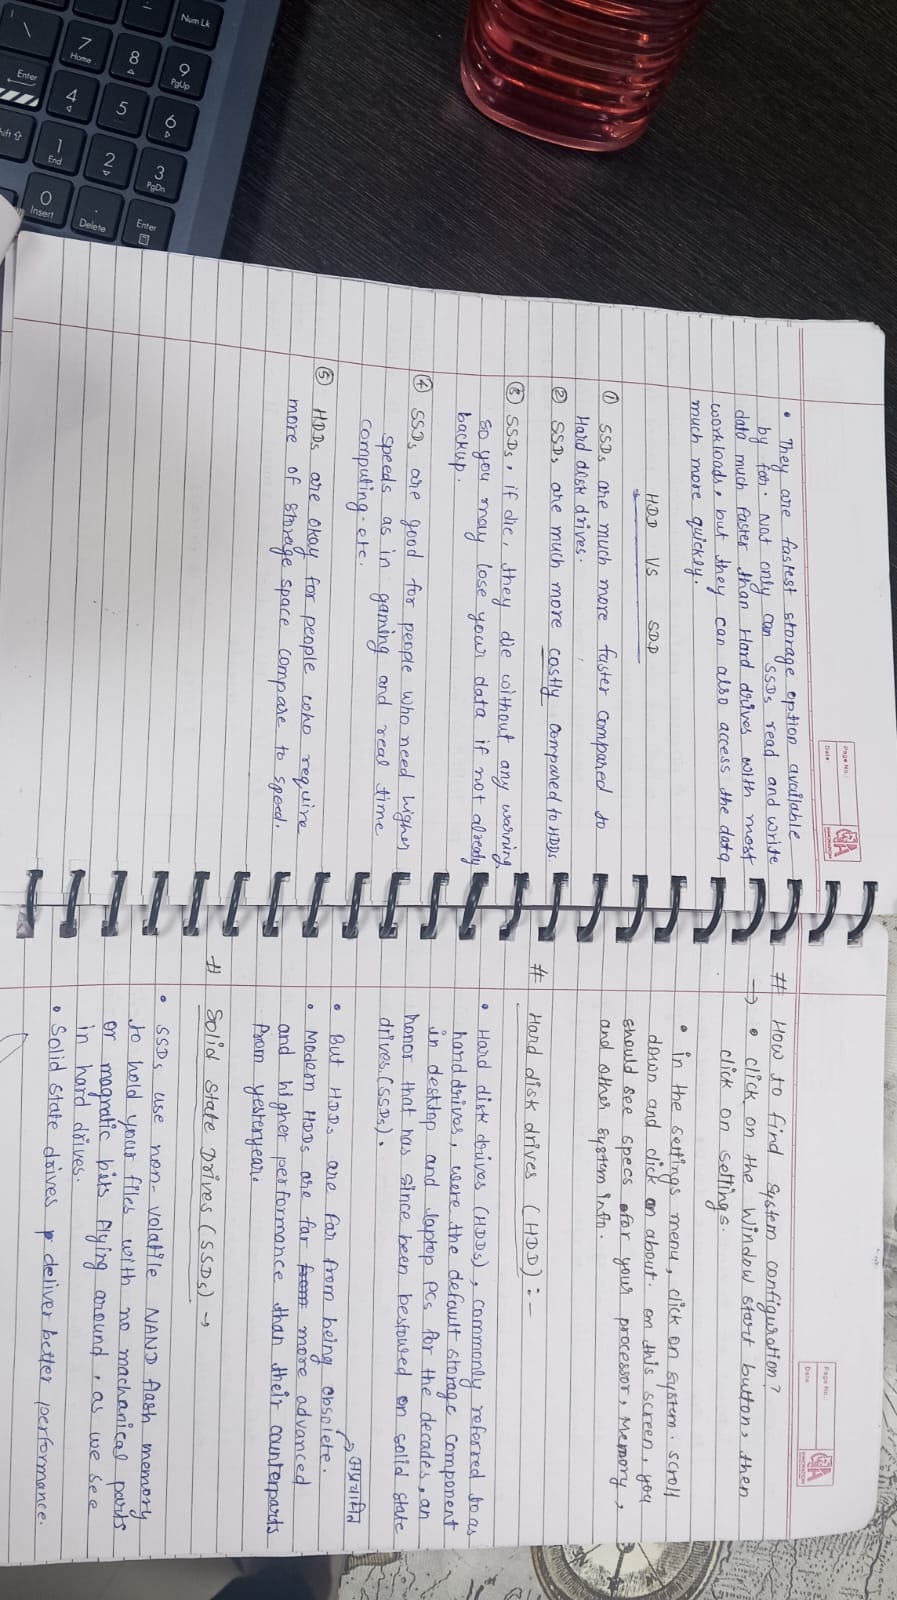 Page No.:
Date:
INNOVATION
• They are fastest storage option available
by far. Not only can SSDs read and write
data much faster than Hard drives with most
workloads, but they can also access the data
much more quickly.
HDD VS SDD
① SSDs are much more faster compared to
Hard disk drives.
② SSDs are much more costly compared to HDDs.
③ SSDs, if die, they die without any warning
so you may lose your data if not already
backup.
④ SSDs are good for people who need higher
speeds as in gaming and real time
computing. etc.
⑤ HDDs are okay for people who require
more of storage space compare to speed.
Page No.:
Date:
INNOVATION
# How to find system configuration?
→ • click on the Window start button, then
click on settings.
• in the settings menu, click on system. scroll
down and click on about. on this screen, you
should see specs for your processor, Memory,
and other system info.
# Hard disk drives (HDD) :-
• Hard disk drives (HDDs), commonly referred to as
hard drives, were the default storage component
in desktop and laptop PCs for the decades, an
honor that has since been bestowed on solid state
drives. (SSDs).
अप्रचामित
• But HDDs are far from being obsolete.
• Modern HDDs are far from more advanced
and higher performance than their counterparts
from yesteryear.
# Solid State Drives (SSDs) →
• SSDs use non-volatile NAND flash memory
to hold your files with no machanical parts
or magnatic bits flying around, as we see
in hard drives.
• Solid state drives deliver better performance.
Num Lk
9 PgUp
6
3 PgDn
Enter
8
5
2
. Delete
7 Home
4
1 End
0 Insert
\
Enter